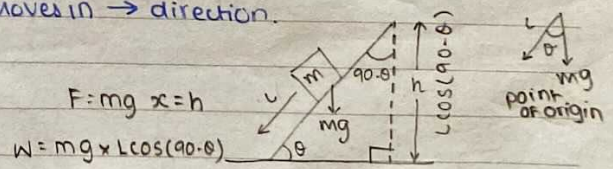 moves in → direction.
F = mg x = h
W = mg x Lcos(90-θ)
m
L
mg
90-θ
θ
h
Lcos(90-θ)
L
θ
mg
point
of origin